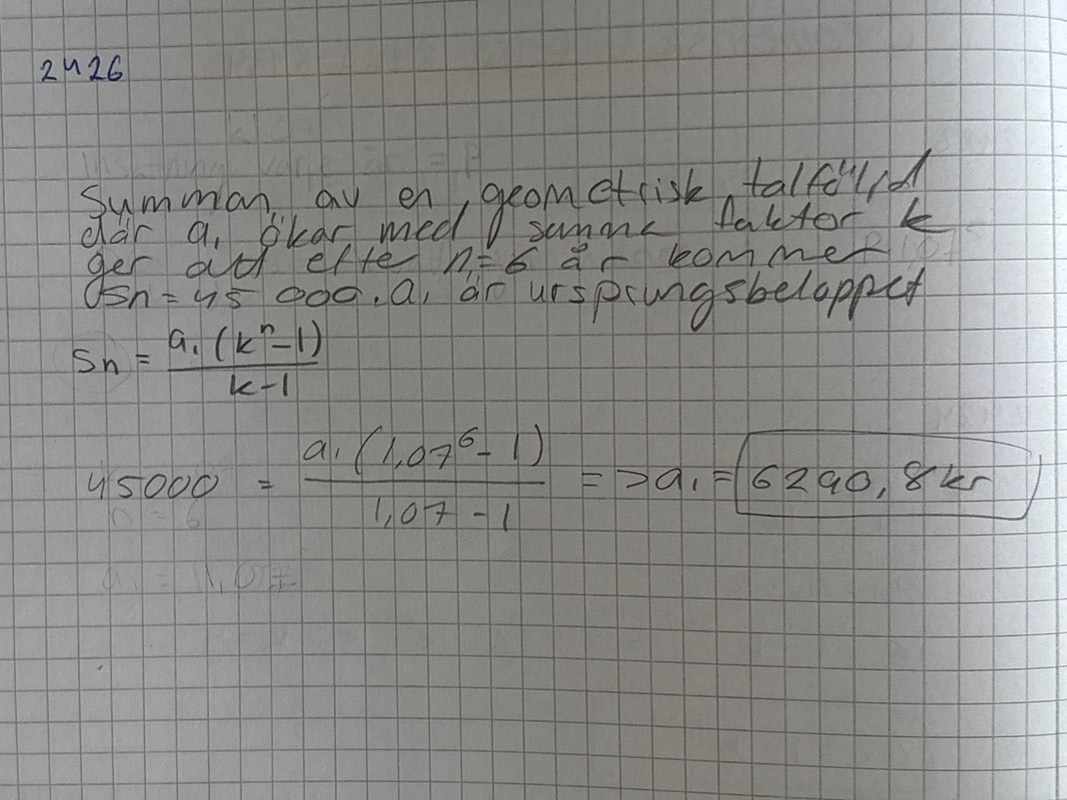 2426
Summan av en geometrisk talföljd
där a₁ ökar med samma faktor k
ger att efte n=6 år kommer
Sn=45 000. a₁ är ursprungsbeloppet
Sn = a₁ (kⁿ-1) / k-1
45000 = a₁ (1,07⁶- 1) / 1,07 - 1 => a₁ = 6290,8 kr
n = 6
a₁ = 1,07